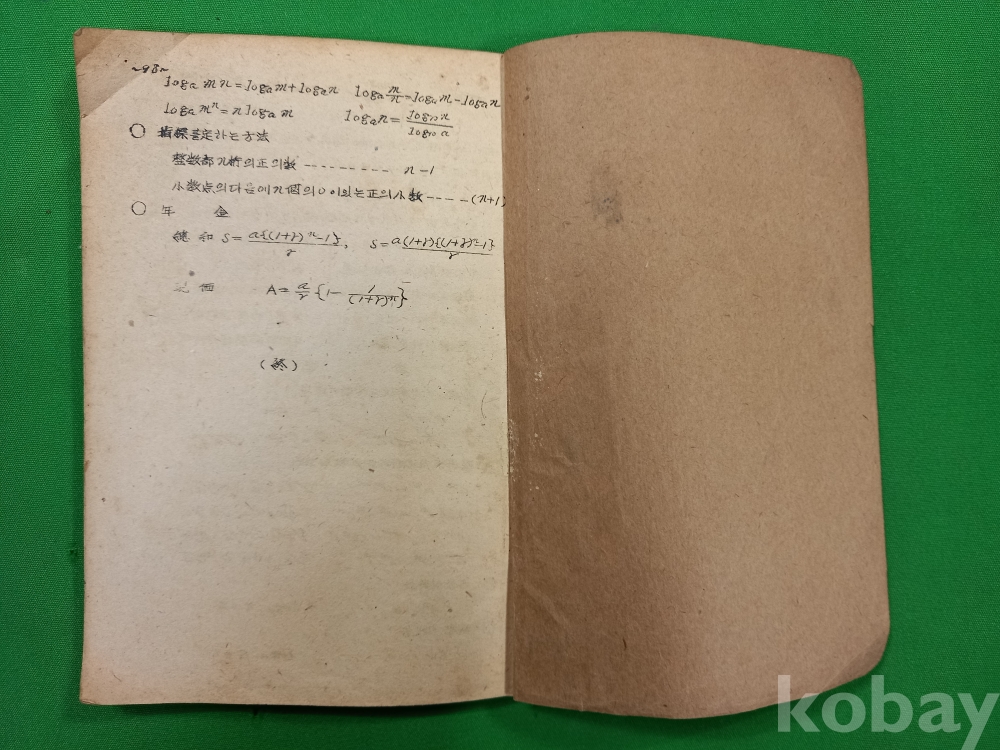 ~98~
log_a mn = log_a m + log_a n   log_a m/n = log_a m − log_a n
log_a mⁿ = n log_a m   log_a n = log₁₀ n / log₁₀ a
○ 指標를定하는方法
整数部n桁의正의数 --------- n−1
小数点의다음에n個의0이있는正의小数 ---- (n+1)
○ 年 金
總和 S = a{(1+r)ⁿ−1}/r, S = a(1+r){(1+r)ⁿ−1}/r
価 A = a/r {1 − 1/(1+r)ⁿ}
(終)
kobay